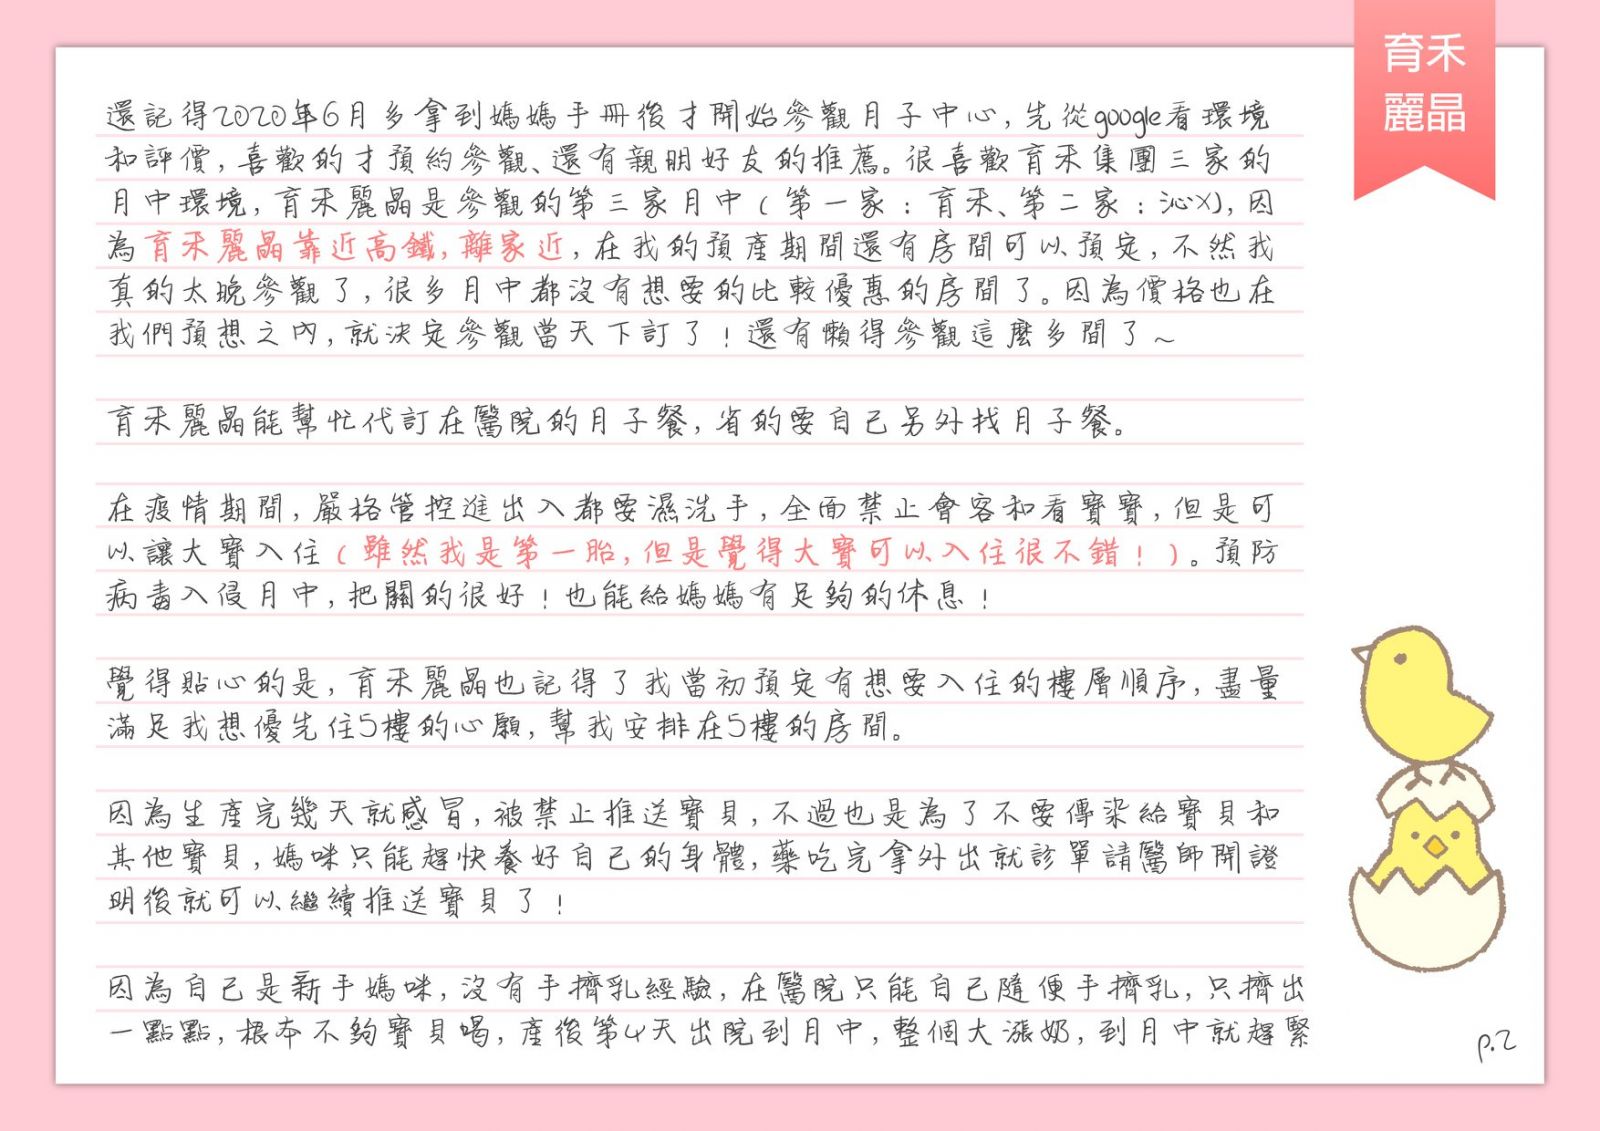 育禾
麗晶
還記得2020年6月多拿到媽媽手冊後才開始參觀月子中心,先從google看環境
和評價,喜歡的才預約參觀、還有親朋好友的推薦。很喜歡育禾集團三家的
月中環境,育禾麗晶是參觀的第三家月中(第一家:育禾、第二家:沁X),因
為育禾麗晶靠近高鐵,離家近,在我的預產期間還有房間可以預定,不然我
真的太晚參觀了,很多月中都沒有想要的比較優惠的房間了。因為價格也在
我們預想之內,就決定參觀當天下訂了!還有懶得參觀這麼多間了~
育禾麗晶能幫忙代訂在醫院的月子餐,省的要自己另外找月子餐。
在疫情期間,嚴格管控進出入都要濕洗手,全面禁止會客和看寶寶,但是可
以讓大寶入住(雖然我是第一胎,但是覺得大寶可以入住很不錯!)。預防
病毒入侵月中,把關的很好!也能給媽媽有足夠的休息!
覺得貼心的是,育禾麗晶也記得了我當初預定有想要入住的樓層順序,盡量
滿足我想優先住5樓的心願,幫我安排在5樓的房間。
因為生產完幾天就感冒,被禁止推送寶貝,不過也是為了不要傳染給寶貝和
其他寶貝,媽咪只能趕快養好自己的身體,藥吃完拿外出就診單請醫師開證
明後就可以繼續推送寶貝了!
因為自己是新手媽咪,沒有手擠乳經驗,在醫院只能自己隨便手擠乳,只擠出
一點點,根本不夠寶貝喝,產後第4天出院到月中,整個大漲奶,到月中就趕緊
P.2